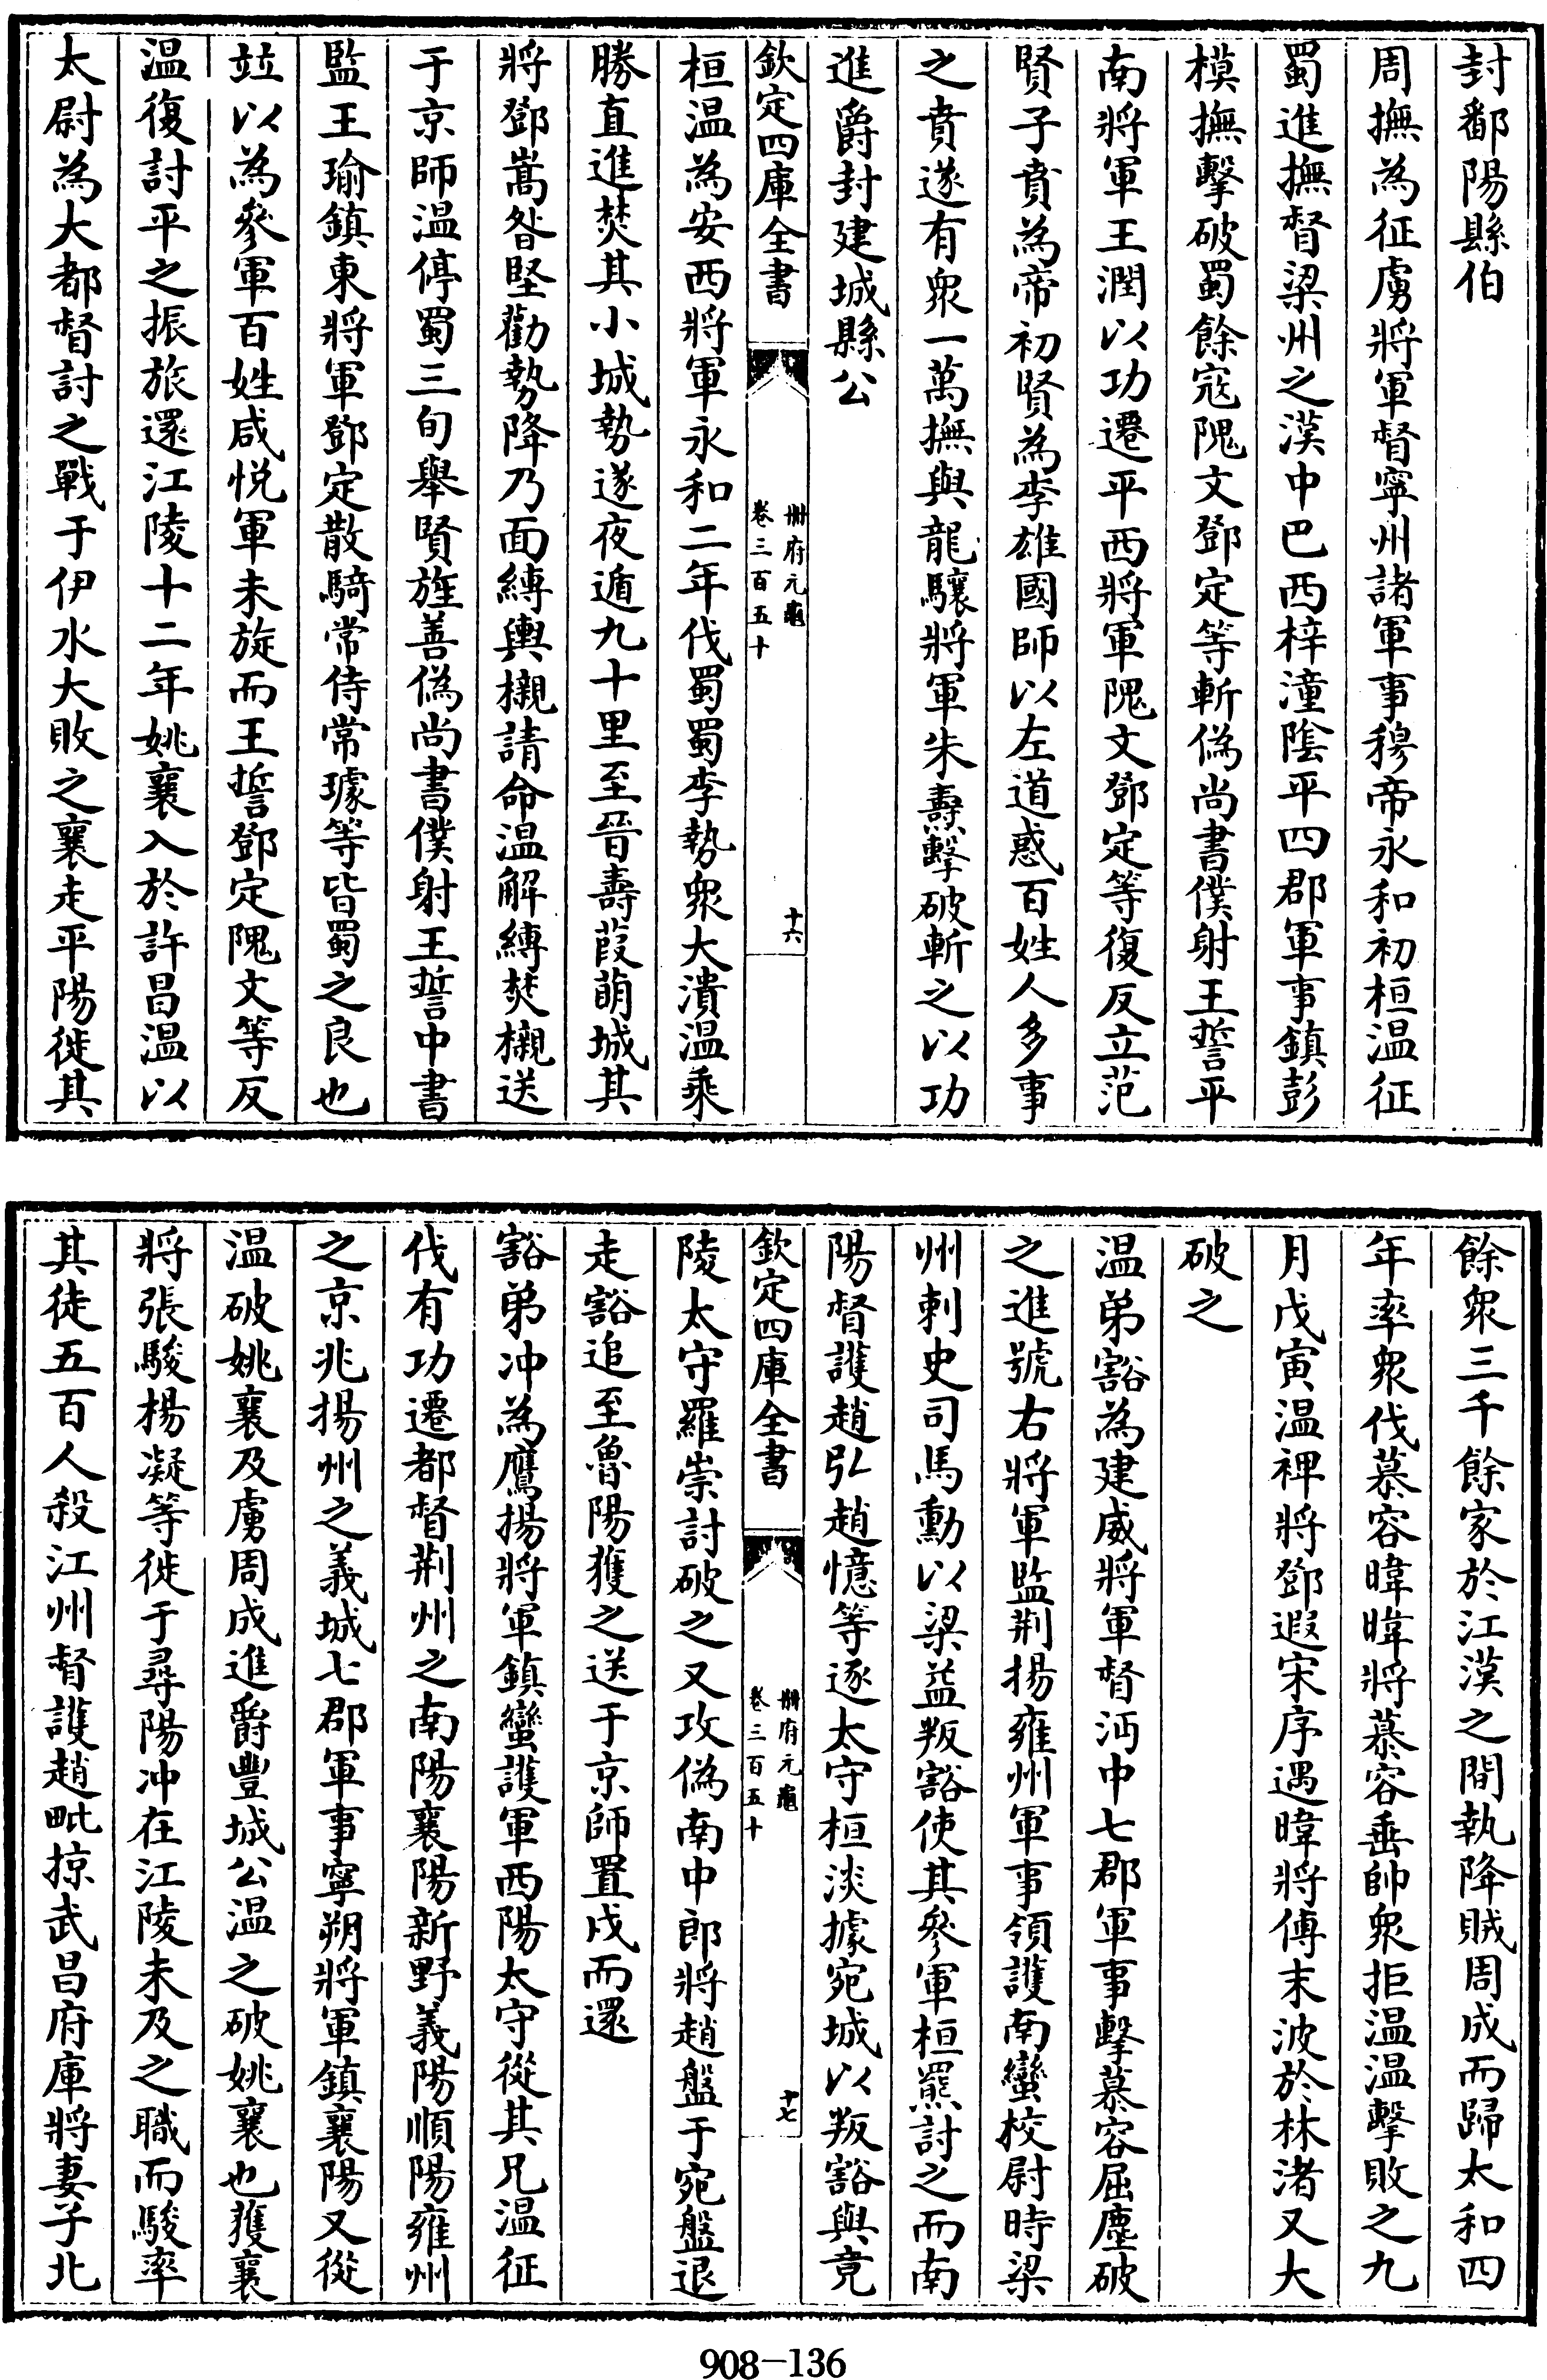 封鄱陽縣伯
周撫為征虜將軍督寧州諸軍事穆帝永和初桓温征
蜀進撫督梁州之漢中巴西梓潼隂平四郡軍事鎮彭
模撫擊破蜀餘寇隗文鄧定等斬偽尚書僕射王誓平
南將軍王潤以功遷平西將軍隗文鄧定等復反立范
賢子賁為帝初賢為李雄國師以左道惑百姓人多事
之賁遂有衆一萬撫與龍驤將軍朱燾擊破斬之以功
進爵封建城縣公
欽定四庫全書
冊府元龜
卷三百五十
十六
桓温為安西將軍永和二年伐蜀蜀李勢衆大潰温乘
勝直進焚其小城勢遂夜遁九十里至晉壽葭萌城其
將鄧嵩昝堅勸勢降乃面縛輿櫬請命温解縛焚櫬送
于京師温停蜀三旬舉賢旌善偽尚書僕射王誓中書
監王瑜鎮東將軍鄧定散騎常侍常璩等皆蜀之良也
竝以為參軍百姓咸悦軍未旋而王誓鄧定隗文等反
温復討平之振旅還江陵十二年姚襄入於許昌温以
太尉為大都督討之戰于伊水大敗之襄走平陽徙其
餘衆三千餘家於江漢之間執降賊周成而歸太和四
年率衆伐慕容暐暐將慕容垂帥衆拒温温擊敗之九
月戊寅温裨將鄧遐宋序遇暐將傅末波於林渚又大
破之
温弟豁為建威將軍督沔中七郡軍事擊慕容屈塵破
之進號右將軍監荆揚雍州軍事領護南蠻校尉時梁
州刺史司馬勳以梁益叛豁使其參軍桓羆討之而南
陽督護趙弘趙憶等逐太守桓淡據宛城以叛豁與竟
欽定四庫全書
冊府元龜
卷三百五十
十七
陵太守羅崇討破之又攻偽南中郎將趙盤于宛盤退
走豁追至魯陽獲之送于京師置戍而還
豁弟冲為鷹揚將軍鎮蠻護軍西陽太守從其兄温征
伐有功遷都督荆州之南陽襄陽新野義陽順陽雍州
之京兆揚州之義城七郡軍事寧朔將軍鎮襄陽又從
温破姚襄及虜周成進爵豐城公温之破姚襄也獲襄
將張駿楊凝等徙于尋陽冲在江陵未及之職而駿率
其徒五百人殺江州督護趙毗掠武昌府庫將妻子北
908-136